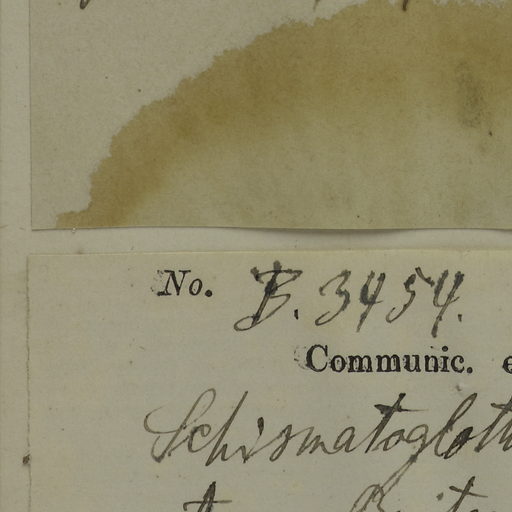 No. B. 3454.
Communic. e
Schismatoglott